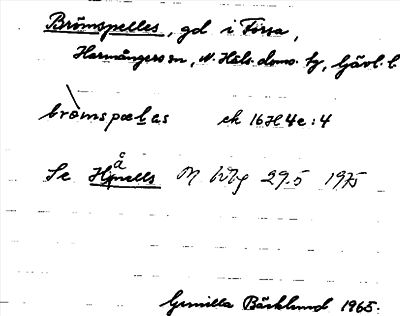 Brömspelles, gd i Forsa,
Harmångers sn, N. Häls. doms. tg, Gävl. l.
brömspælas ek 16H 4e:4
Se Hånells M
29.5 1975
Gunilla Bäcklund 1965.